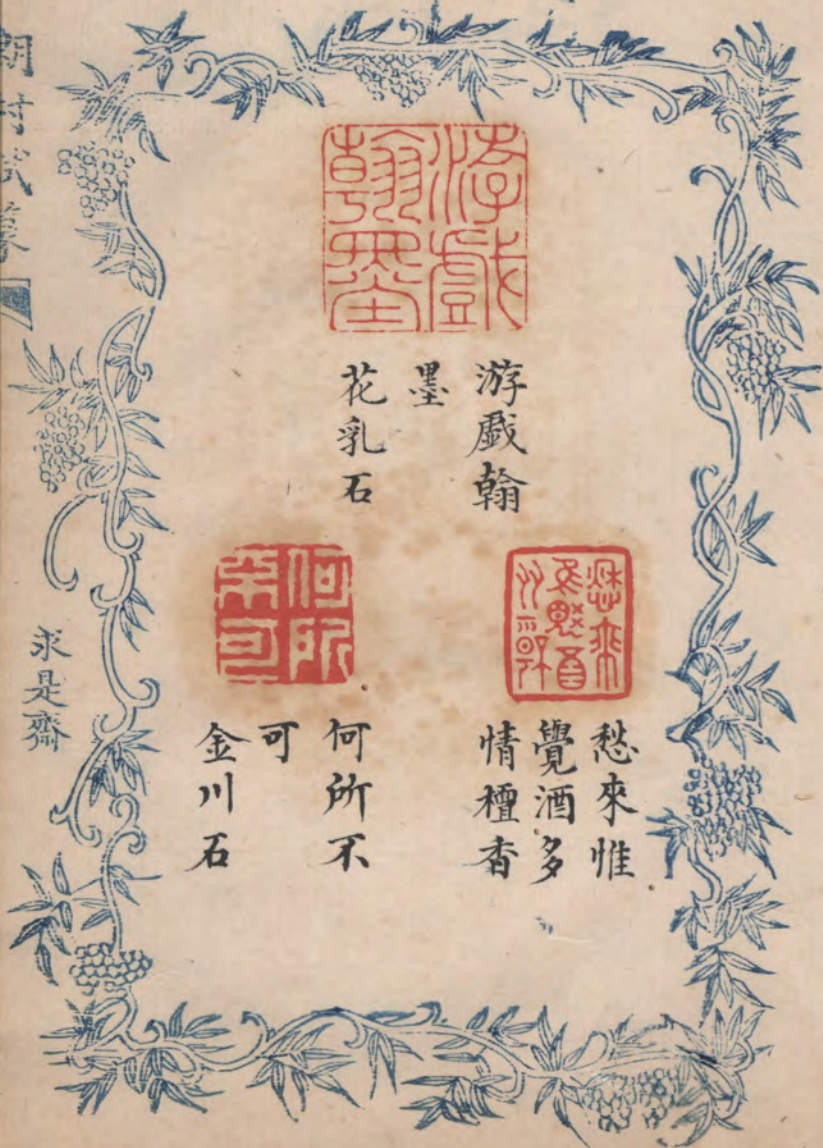 游戲翰
墨
游戲翰
墨
花乳石
愁來惟
覺酒多
情
愁來惟
覺酒多
情檀香
何所
不可
何所不
可
金川石
求是齋